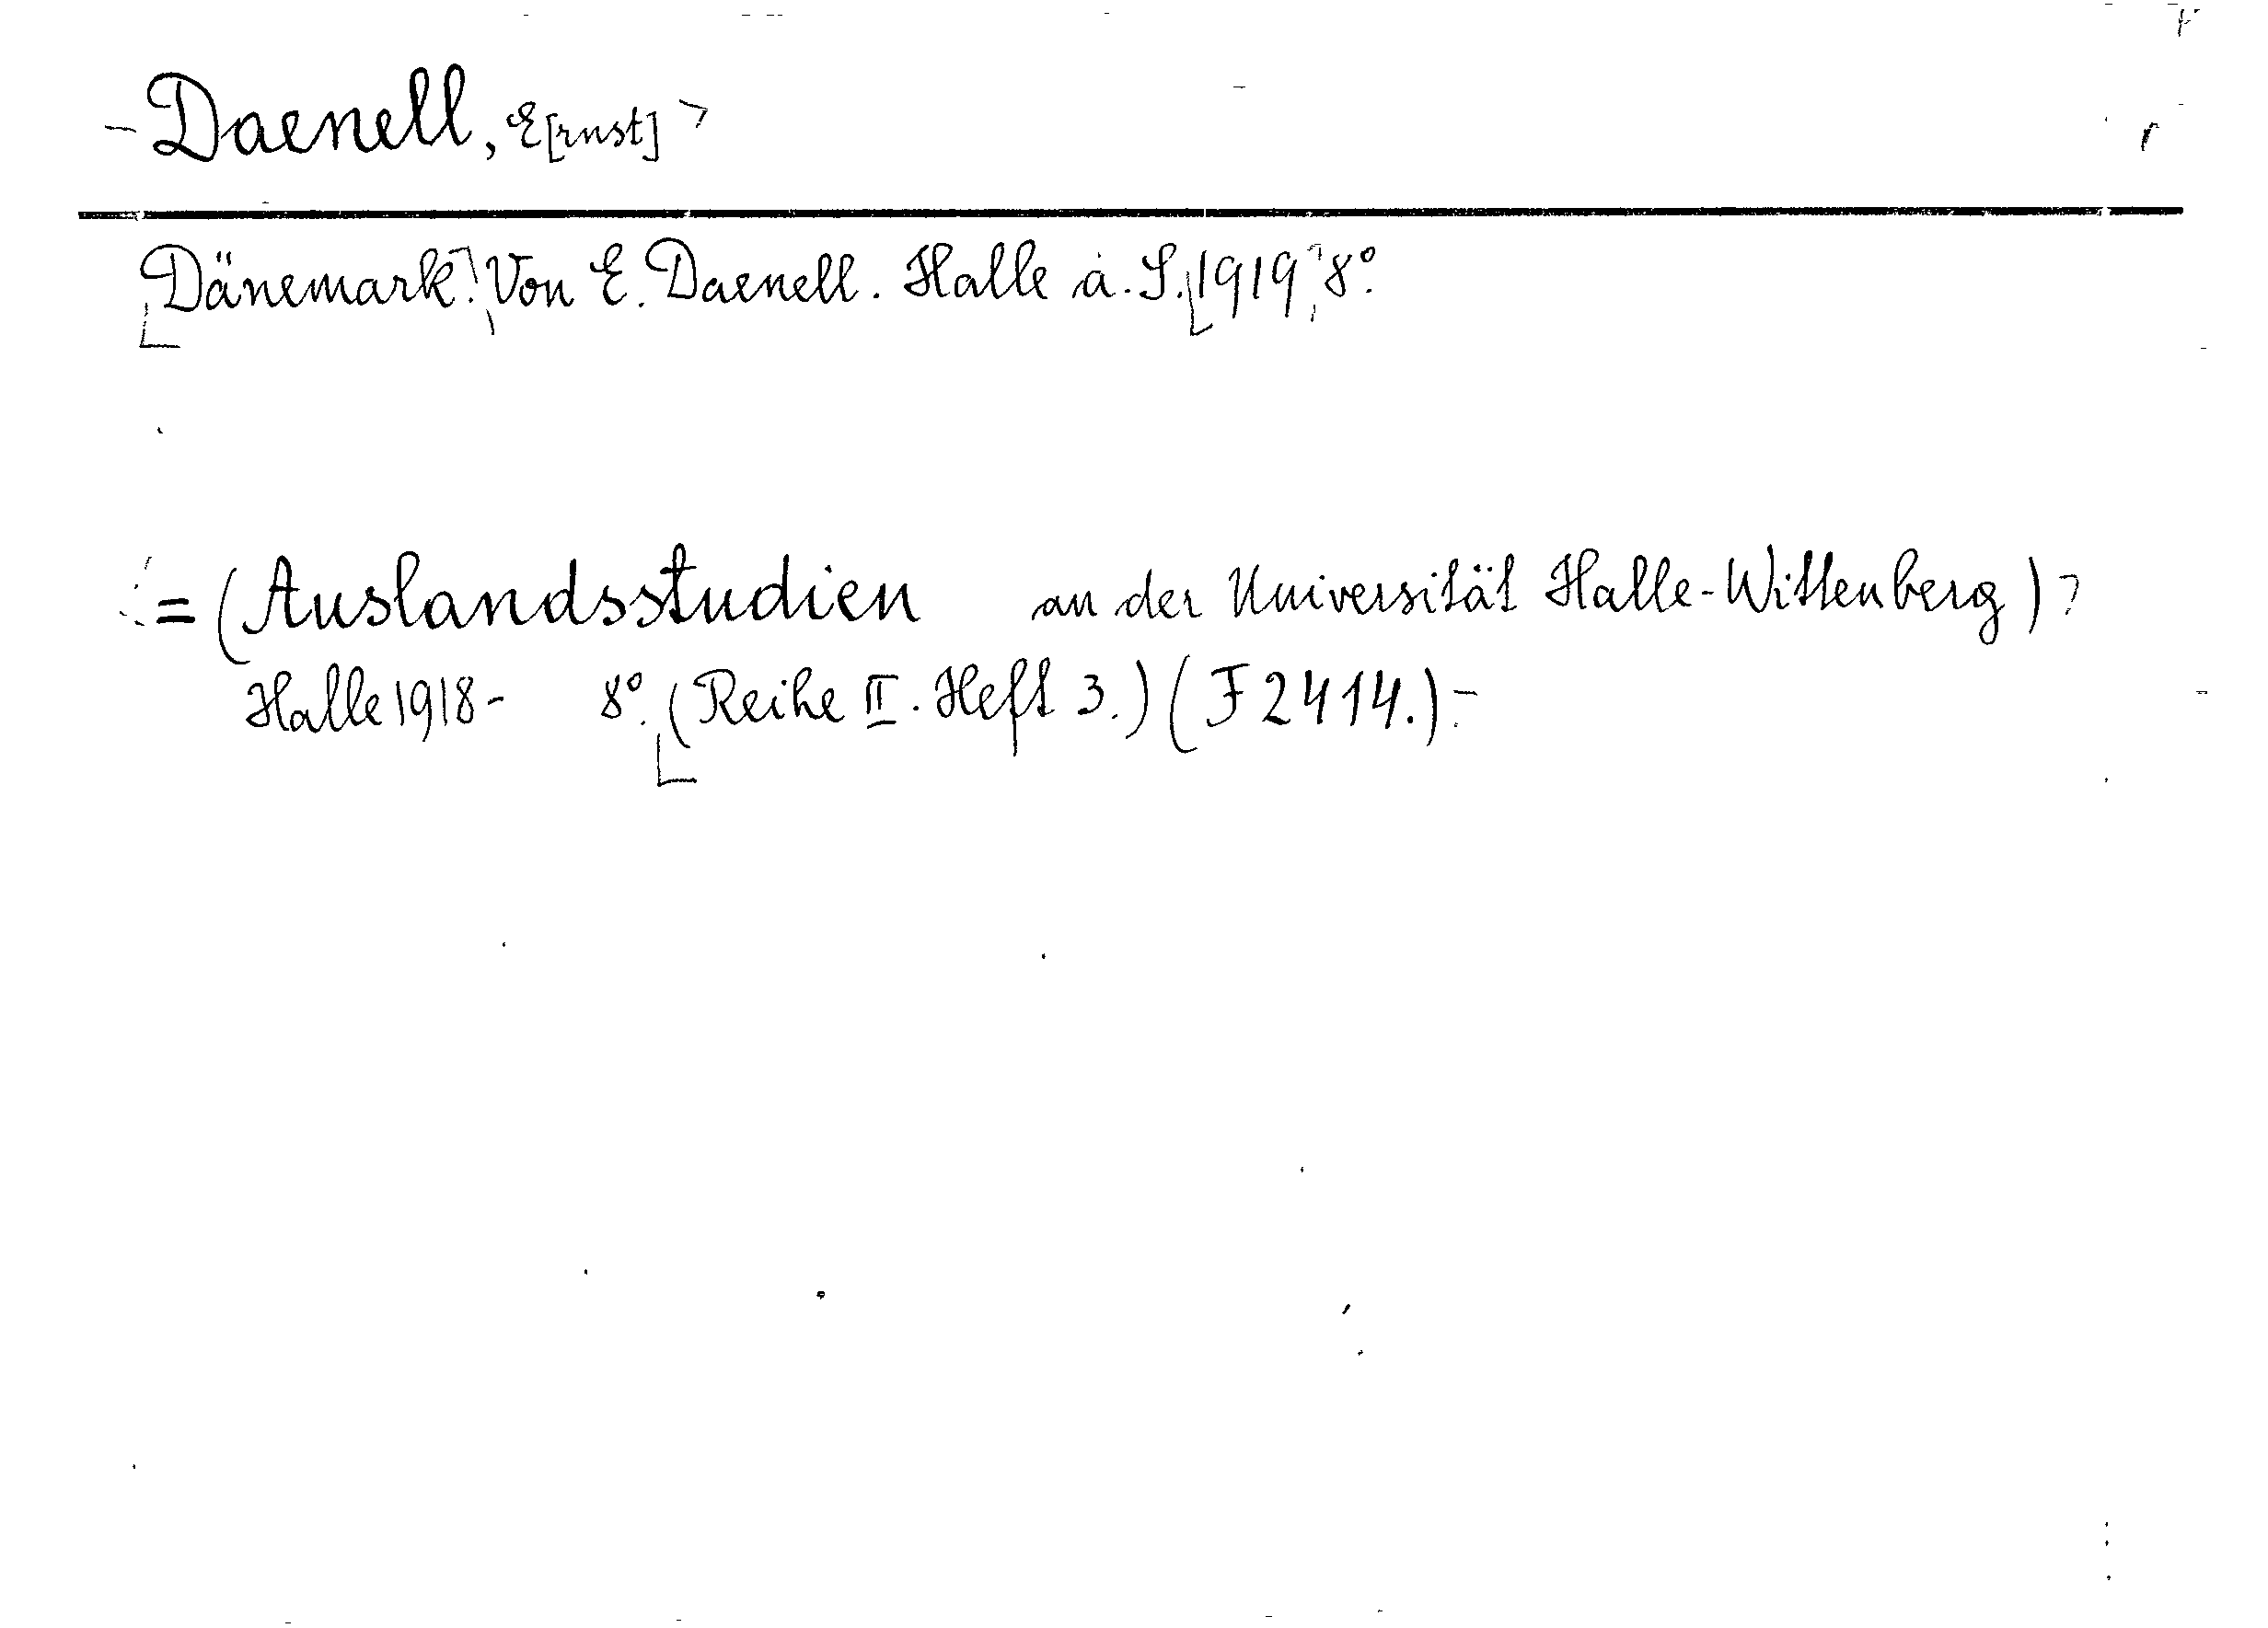 Daenell, E[rnst]
Dänemark. Von E. Daenell. Halle a. S. 1919. 8°.
= (Auslandsstudien an der Universität Halle-Wittenberg)
Halle 1918- 8°. (Reihe II. Heft 3.) (F 2414.)